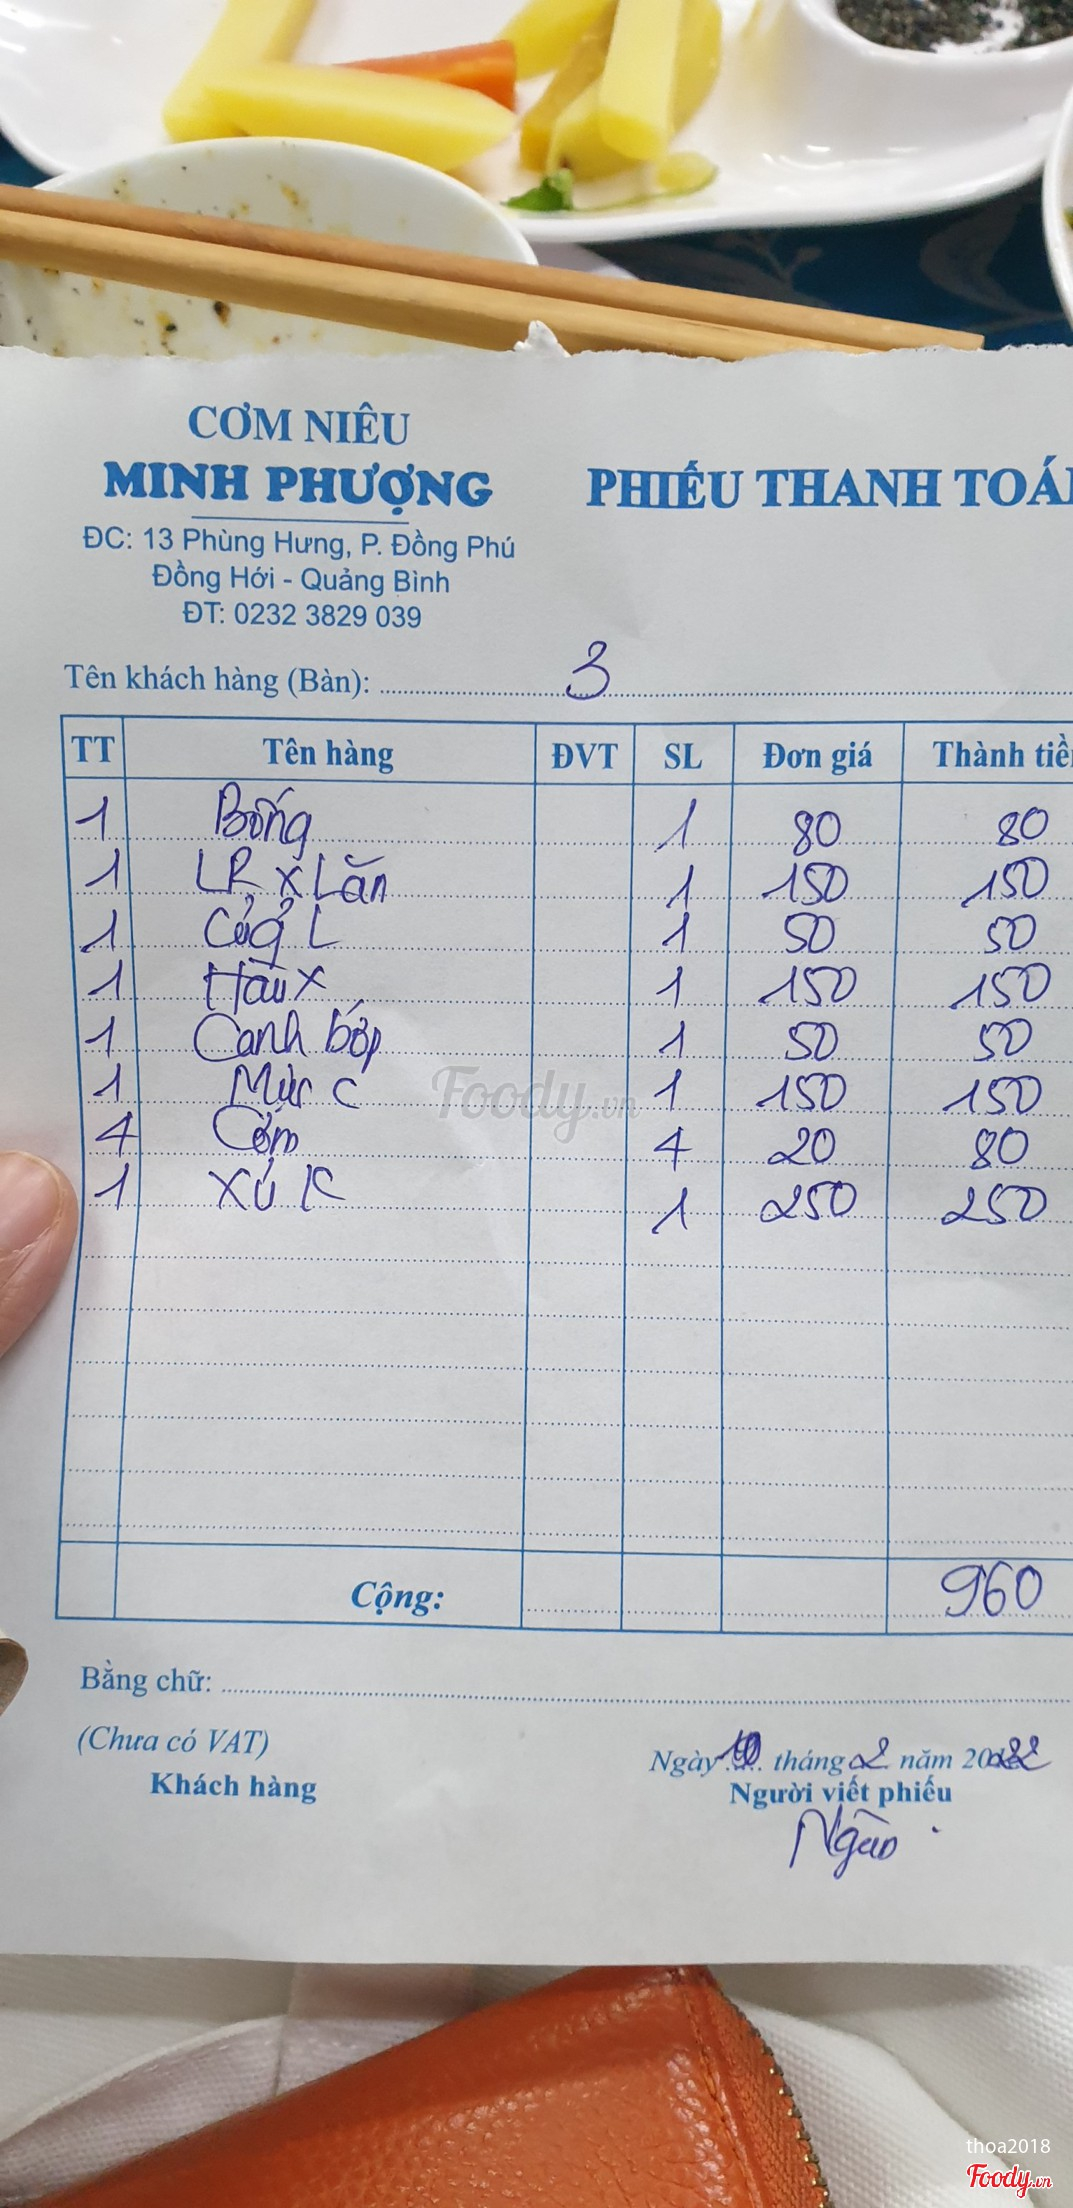 CƠM NIÊU
MINH PHƯỢNG
PHIẾU THANH TOÁN
ĐC: 13 Phùng Hưng, P. Đồng Phú
Đồng Hới - Quảng Bình
ĐT: 0232 3829 039
Tên khách hàng (Bàn): 3
TT Tên hàng ĐVT SL Đơn giá Thành tiề
1 Bống 1 80 80
1 LR x Lăn 1 150 150
1 Củ quả L 1 50 50
1 Hàu x 1 150 150
1 Canh bớp 1 50 50
1 Mực C 1 150 150
4 Cơm 4 20 80
1 XÚ K 1 250 250
Foody.vn
Cộng: 960
Bằng chữ:
(Chưa có VAT)
Khách hàng
Ngày 10 tháng 2 năm 2022
Người viết phiếu
thoa2018
Foody.vn